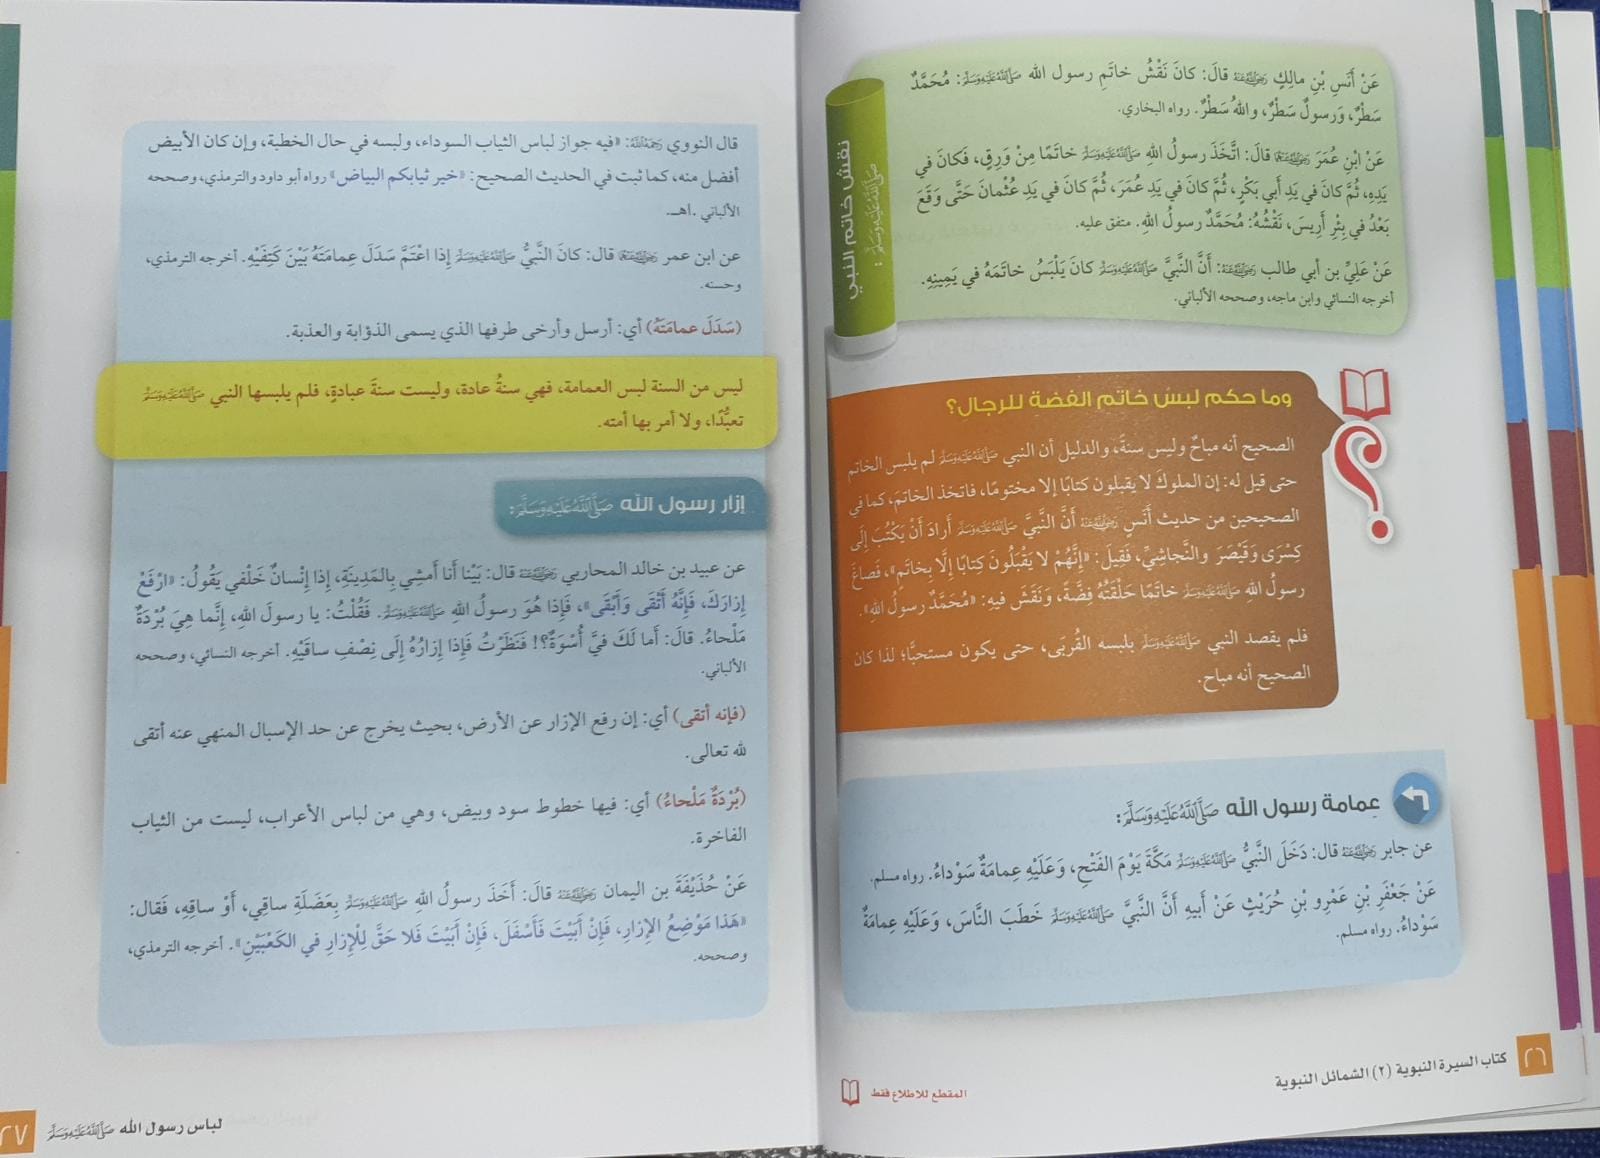 نقش خاتم النبي
ﷺ:
عَنْ أَنَسِ بْنِ مالِكٍ رَضِيَ اللَّهُ عَنْهُ قالَ: كانَ نَقْشُ خاتَمِ رسول الله ﷺ: مُحَمَّدٌ
سَطْرٌ، وَرَسولٌ سَطْرٌ، واللهُ سَطْرٌ. رواه البخاري.
عَنْ ابْنِ عُمَرَ رَضِيَ اللَّهُ عَنْهُمَا قالَ: اتَّخَذَ رسولُ اللهِ ﷺ خاتَمًا مِنْ وَرِقٍ، فَكانَ في
يَدِهِ، ثُمَّ كانَ في يَدِ أَبي بَكْرٍ، ثُمَّ كانَ في يَدِ عُمَرَ، ثُمَّ كانَ في يَدِ عُثْمانَ حَتَّى وَقَعَ
بَعْدُ في بِئْرِ أَرِيسَ، نَقْشُهُ: مُحَمَّدٌ رسولُ اللهِ. متفق عليه.
عَنْ عَلِيِّ بن أبي طالب رَضِيَ اللَّهُ عَنْهُ: أَنَّ النَّبِيَّ ﷺ كانَ يَلْبَسُ خاتَمَهُ في يَمِينِهِ.
أخرجه النسائي وابن ماجه، وصححه الألباني.
وما حكم لبس خاتم الفضة للرجال؟
الصحيح أنه مباحٌ وليس سنةً، والدليل أن النبي ﷺ لم يلبس الخاتم
حتى قيل له: إن الملوكَ لا يقبلون كتابًا إلا مختومًا، فاتخذ الخاتمَ، كما في
الصحيحين من حديث أَنَسٍ رَضِيَ اللَّهُ عَنْهُ أَنَّ النَّبِيَّ ﷺ أَرادَ أَنْ يَكْتُبَ إِلَى
كِسْرَى وَقَيْصَرَ والنَّجاشِيِّ، فَقِيلَ: «إِنَّهُمْ لا يَقْبَلُونَ كتابًا إِلَّا بِخاتَمٍ»، فَصاغَ
رسولُ اللهِ ﷺ خاتَمًا حَلْقَتُهُ فِضَّةً، وَنَقَشَ فيهِ: «مُحَمَّدٌ رسولُ اللهِ».
فلم يقصد النبي ﷺ بلبسه القُربَى، حتى يكون مستحبًّا؛ لذا كان
الصحيح أنه مباح.
عِمامة رسول الله ﷺ:
عن جابر رَضِيَ اللَّهُ عَنْهُ قال: دَخَلَ النَّبِيُّ ﷺ مَكَّةَ يَوْمَ الفَتْحِ، وَعَلَيْهِ عِمامَةٌ سَوْداءُ. رواه مسلم.
عَنْ جَعْفَرِ بْنِ عَمْرِو بْنِ حُرَيْثٍ عَنْ أَبيهِ أَنَّ النَّبِيَّ ﷺ خَطَبَ النَّاسَ، وَعَلَيْهِ عِمامَةٌ
سَوْداءُ. رواه مسلم.
٢٦
كتاب السيرة النبوية (٢) الشمائل النبوية
المقطع للاطلاع فقط
قال النووي رَحِمَهُ اللَّهُ: «فيه جواز لباس الثياب السوداء، ولبسه في حال الخطبة، وإن كان الأبيض
أفضل منه، كما ثبت في الحديث الصحيح: «خير ثيابكم البياض» رواه أبو داود والترمذي، وصححه
الألباني .اهـ.
عن ابن عمر رَضِيَ اللَّهُ عَنْهُمَا قال: كانَ النَّبِيُّ ﷺ إِذا اعْتَمَّ سَدَلَ عِمامَتَهُ بَيْنَ كَتِفَيْهِ. أخرجه الترمذي،
وحسنه.
(سَدَلَ عمامَتَهُ) أي: أرسل وأرخى طرفها الذي يسمى الذؤابة والعذبة.
ليس من السنة لبس العمامة، فهي سنةُ عادة، وليست سنةَ عبادةٍ، فلم يلبسها النبي ﷺ
تعبُّدًا، ولا أمر بها أمته.
إزار رسول الله ﷺ:
عن عبيد بن خالد المحاربي رَضِيَ اللَّهُ عَنْهُ قال: بَيْنا أَنا أَمشِي بِالمَدِينَةِ، إِذا إِنْسانٌ خَلْفي يَقُولُ: «ارْفَعْ
إِزارَكَ، فَإِنَّهُ أَتْقَى وَأَبْقَى»، فَإِذا هُوَ رسولُ اللهِ ﷺ. فَقُلْتُ: يا رسولَ اللهِ، إِنَّما هِيَ بُرْدَةٌ
مَلْحاءُ. قالَ: أَما لَكَ فيَّ أُسْوَةٌ؟! فَنَظَرْتُ فَإِذا إِزارُهُ إِلَى نِصْفِ ساقَيْهِ. أخرجه النسائي، وصححه
الألباني.
(فإنه أتقى) أي: إن رفع الإزار عن الأرض، بحيث يخرج عن حد الإسبال المنهي عنه أتقى
لله تعالى.
(بُرْدَةٌ مَلْحاءُ) أي: فيها خطوط سود وبيض، وهي من لباس الأعراب، ليست من الثياب
الفاخرة.
عَنْ حُذَيْفَةَ بن اليمان رَضِيَ اللَّهُ عَنْهُ قالَ: أَخَذَ رسولُ اللهِ ﷺ بِعَضَلَةِ ساقِي، أَوْ ساقِهِ، فَقال:
«هَذا مَوْضِعُ الإِزارِ، فَإِنْ أَبَيْتَ فَأَسْفَلَ، فَإِنْ أَبَيْتَ فَلا حَقَّ لِلْإِزارِ في الكَعْبَيْنِ». أخرجه الترمذي،
وصححه.
لباس رسول الله ﷺ
٢٧